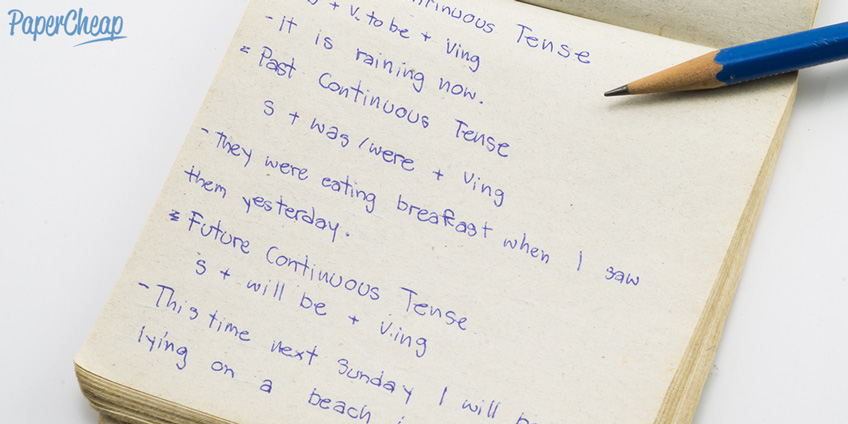 PaperCheap
Continuous Tense
+ v. to be + Ving
- it is raining now.
* Past Continuous Tense
s + was/were + Ving
- They were eating breafkast when I saw
them yesterday.
* Future Continuous Tense
s + will be + v.ing
- This time next Sunday I will be
lying on a beach